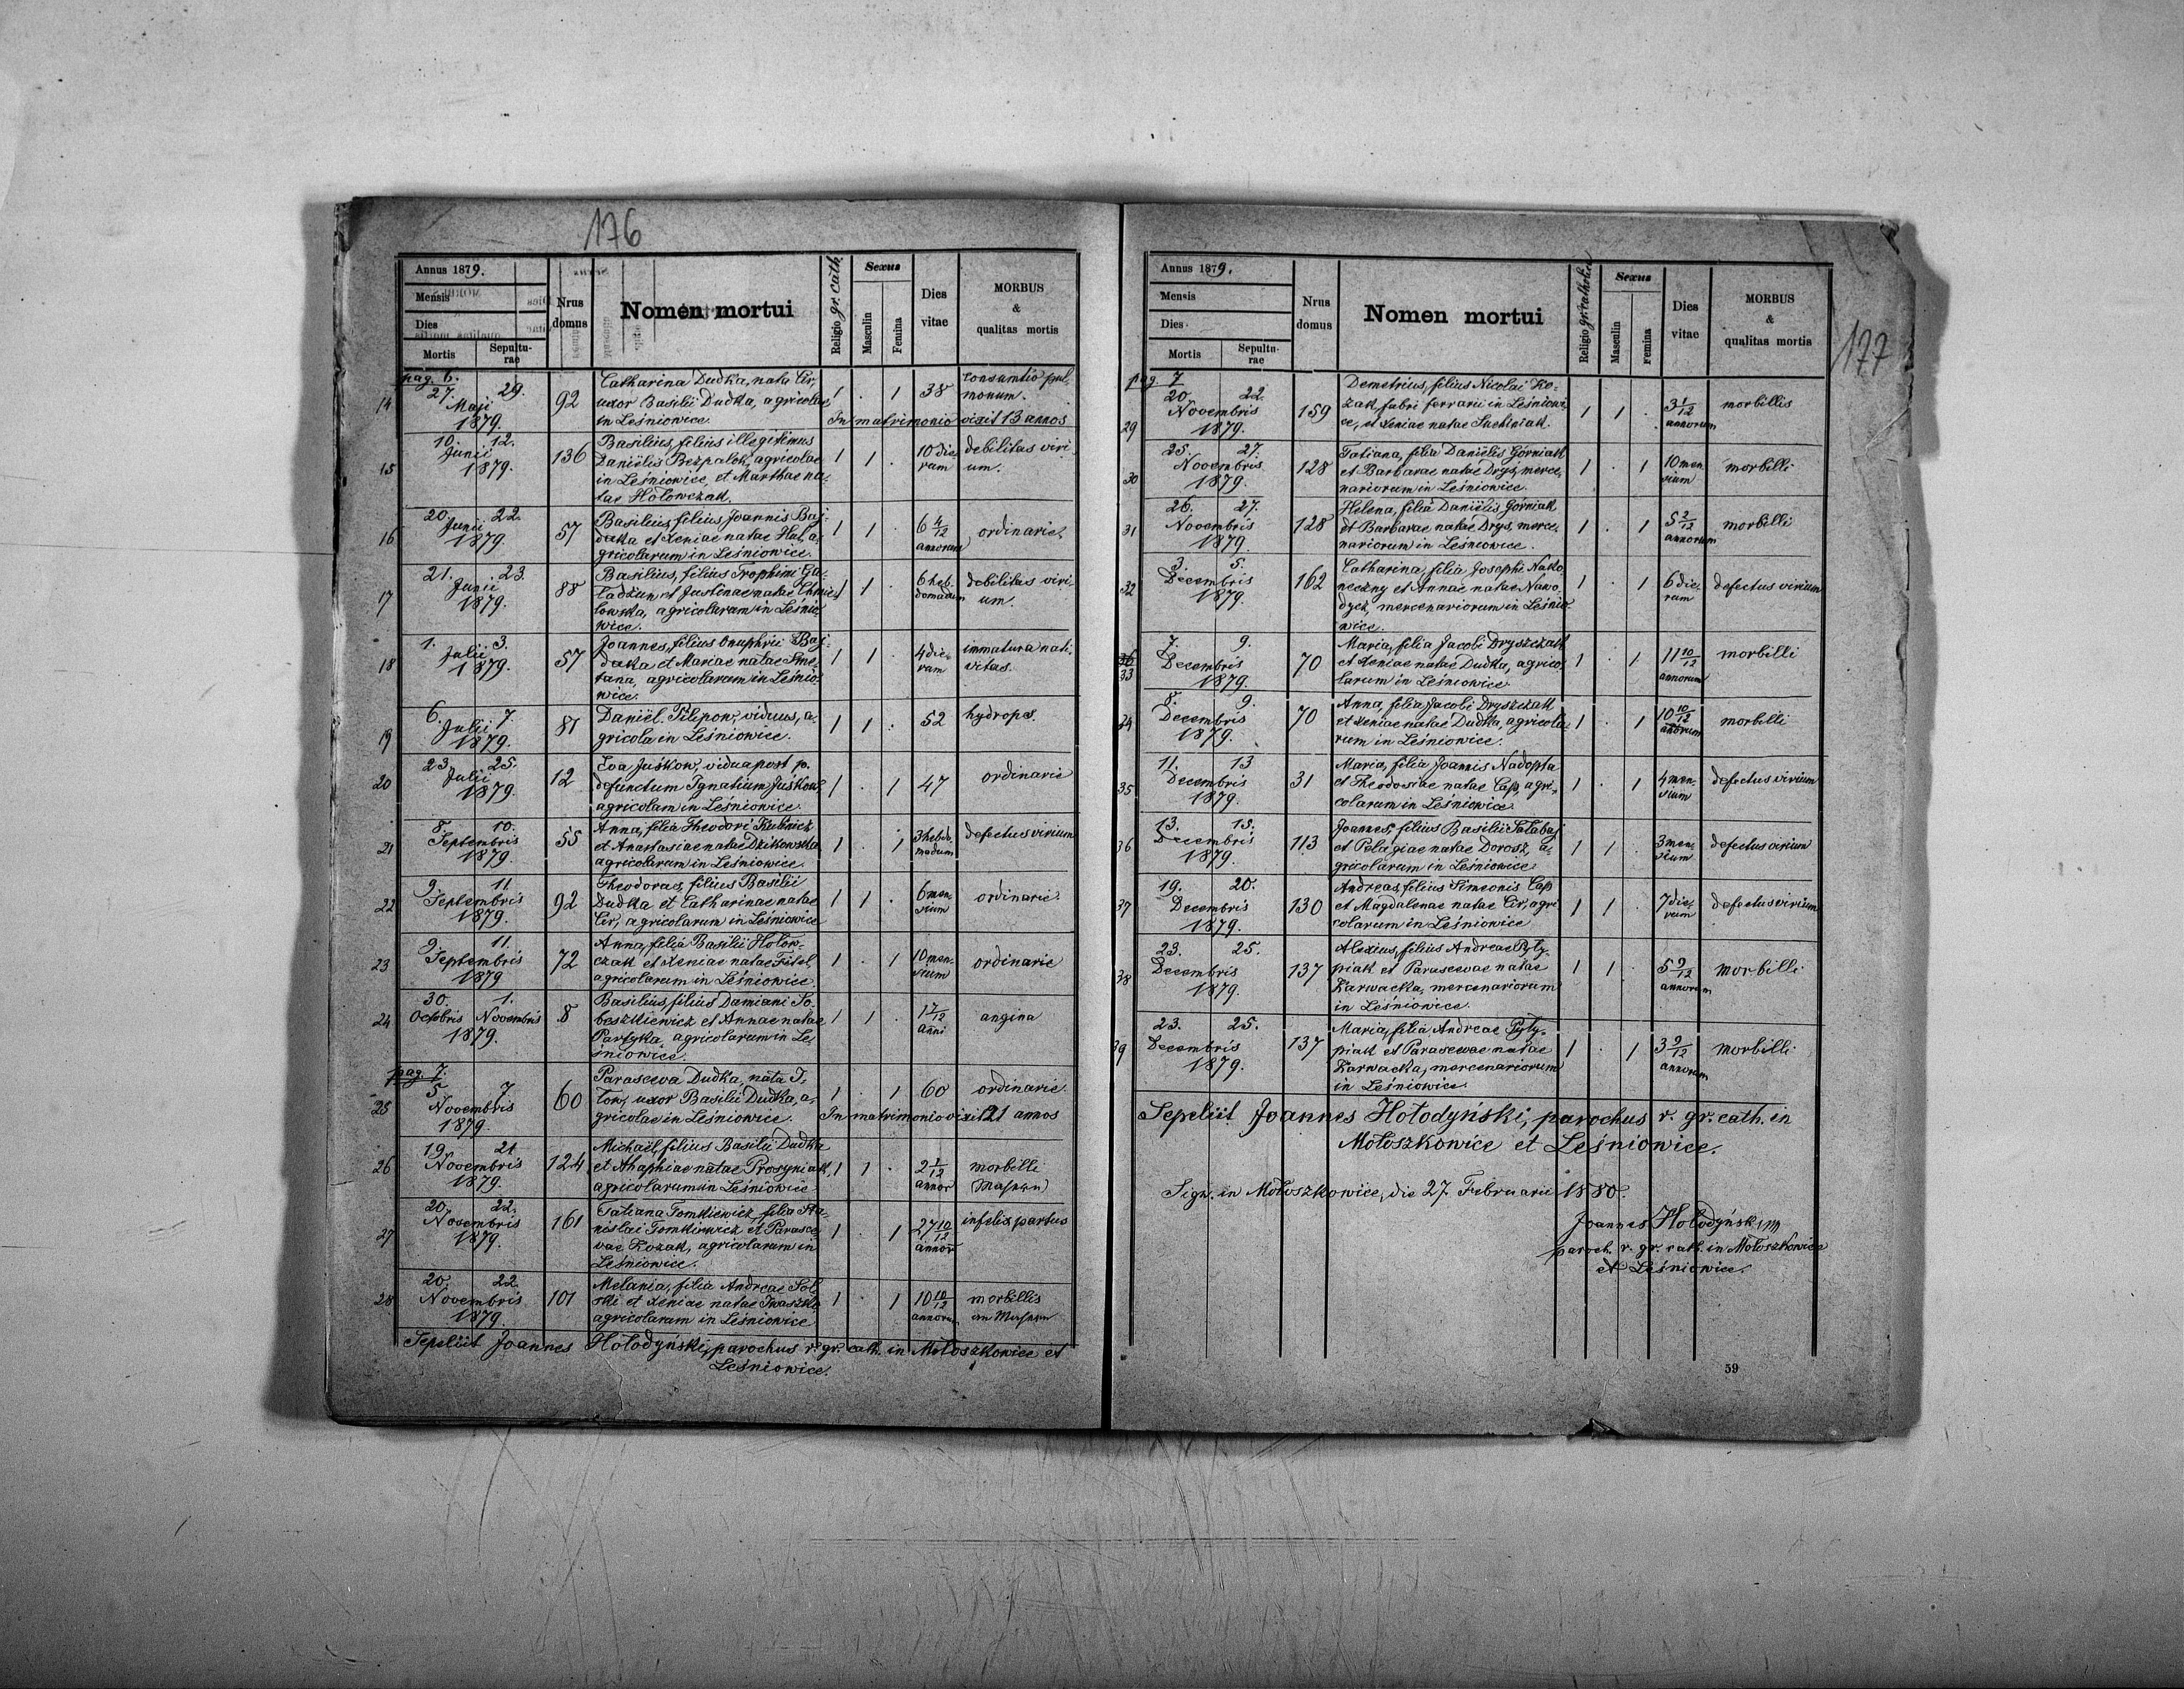 176
Annus 1879.
Mensis
Dies
Mortis
Sepultu-
rae
Nrus
domus
Nomen mortui
Religio gr. cath.
Sexus
Masculin
Femina
Dies
vitae
MORBUS
&
qualitas mortis
pag. 6.
14
27. 29.
Maji
1879.
92
Catharina Dudka, nata Cir,
uxor Basilii Dudka, agricolae
in Leśniowice.
1 . 1 38
consumtio pul-
monum.
In matrimonio vixit 13 annos
15
10. 12.
Junii
1879.
136
Basilius, filius illegitimus
Daniëlis Bezpalok, agricolae
in Leśniowice, et Marthae na-
tae Hołowczak.
1 1 .
10 die-
rum
debilitas viri-
um.
16
20. 22.
Junii
1879.
57
Basilius, filius Joannis Baj-
daka et Xeniae natae Hul, a-
gricolarum in Leśniowice.
1 1 .
6 4/12
annorum
ordinarie
17
21. 23.
Junii
1879.
88
Basilius, filius Trophimi Ga-
ładzun et Justinae natae Chmie-
lowska, agricolarum in Leśnio-
wice.
1 1 .
6 heb-
domadum
debilitas viri-
um.
18
1. 3.
Julii
1879.
57
Joannes, filius Onuphrii Baj-
daka et Mariae natae Sme-
tana, agricolarum in Leśnio-
wice.
1 1 .
4 die-
rum
immatura nati-
vitas.
19
6. 7.
Julii
1879.
81
Daniël Filipow, viduus, a-
gricola in Leśniowice.
1 1 . 52
hydrops.
20
23. 25.
Julii
1879.
12
Eva Juśkow, vidua post p.
defunctum Ignatium Juśkow,
agricolam in Leśniowice.
1 . 1 47
ordinarie
21
8. 10.
Septembris
1879.
55
Anna, filia Theodori Kubnicz
et Anastasiae natae Dzikowska
agricolarum in Leśniowice.
1 . 1
3 hebdo-
madum
defectus virium
22
9. 11.
Septembris
1879.
92
Theodorus, filius Basilii
Dudka et Catharinae natae
Cir, agricolarum in Leśniowice
1 1 .
6 men-
sium
ordinarie
23
9. 11.
Septembris
1879
72
Anna, filia Basilii Hołow-
czak et Xeniae natae Fitel,
agricolarum in Leśniowice.
1 . 1
10 men-
sium
ordinarie
24
30. 1.
Octobris Novembris
1879.
8
Basilius, filius Damiani So-
beszkiewicz et Annae natae
Parfyka, agricolarum in Le-
śniowice.
1 1 .
anni
angina
pag. 7.
25
5. 7.
Novembris
1879.
60
Parascewa Dudka, nata T-
low, uxor Basilii Dudka, a-
gricolae in Leśniowice.
1 . 1 60
ordinarie.
In matrimonio vixit 21 annos
26
19. 21
Novembris
1879.
124
Michaël, filius Basilii Dudka
et Ahaphiae natae Prosyniak,
agricolarum in Leśniowice
1 1 .
2 1/12
annor
morbilli
27
20. 22.
Novembris
1879.
161
Tatiana Tomkiewicz, filia Sta-
nislai Tomkiewicz et Parasce-
vae Kozak, agricolarum in
Leśniowice.
1 . 1
27 10/12
annor
infelix partus
28
20. 22.
Novembris
1879.
101
Melania, filia Andreae Sol-
ski et Xeniae natae Iwaszko
agricolarum in Leśniowice
1 . 1
10 10/12
annorum
morbillis
Sepeliit Joannes Hołodyński, parochus r. gr. cath. in Mołoszkowice et
Leśniowice.
177
Annus 1879.
Mensis
Dies
Mortis
Sepultu-
rae
Nrus
domus
Nomen mortui
Religio gr. catholica
Sexus
Masculin
Femina
Dies
vitae
MORBUS
&
qualitas mortis
pag. 7
29
20. 22.
Novembris
1879.
159
Demetrius, filius Nicolai Ko-
zak, fabri ferrarii in Leśniowi-
ce, et Xeniae natae Suchiniak.
1 1 .
3 1/12
annorum
morbillis
30
25. 27.
Novembris
1879.
128
Tatiana, filia Daniëlis Górniak
et Barbarae natae Drys, merce-
nariorum in Leśniowice.
1 . 1
10 men-
sium
morbilli
31
26. 27.
Novembris
1879.
128
Helena, filia Daniëlis Górniak
et Barbarae natae Drys, merce-
nariorum in Leśniowice.
1 . 1
5 2/12
annorum
morbilli
32
3. 5.
Decembris
1879.
162
Catharina, filia Josephi Nako-
neczny et Annae natae Nawo-
dycz, mercenariorum in Leśnio-
wice.
1 . 1
6 die-
rum
defectus virium
33
7. 9.
Decembris
1879.
70
Maria, filia Jacobi Dryszczak
et Xeniae natae Dudka, agrico-
larum in Leśniowice.
1 . 1
11 10/12
annorum
morbilli
34
8. 9.
Decembris
1879.
70
Anna, filia Jacobi Dryszczak
et Xeniae natae Dudka, agricola-
rum in Leśniowice.
1 . 1
10 10/12
annorum
morbilli
35
11. 13
Decembris
1879.
31
Maria, filia Joannis Nadopta
et Theodosiae natae Cap, agri-
colarum in Leśniowice
1 . 1
4 men-
sium
defectus virium
36
13. 15.
Decembris
1879.
113
Joannes, filius Basilii Sałabaj
et Pelagiae natae Dorosz, a-
gricolarum in Leśniowice.
1 1 .
3 men-
sium
defectus virium
37
19. 20.
Decembris
1879.
130
Andreas, filius Simeonis Cap
et Magdalenae natae Cir, agri-
colarum in Leśniowice
1 1 .
7 die-
rum
defectus virium
38
23. 25.
Decembris
1879.
137
Alexius, filius Andreae Pyly-
piak et Parascevae natae
Zarwacka, mercenariorum
in Leśniowice.
1 1 .
5 9/12
annorum
morbilli
39
23. 25.
Decembris
1879.
137
Maria, filia Andreae Pyly-
piak et Parascevae natae
Zarwacka, mercenariorum
in Leśniowice.
1 . 1
3 9/12
annorum
morbilli
Sepeliit Joannes Hołodyński, parochus r. gr. cath. in
Mołoszkowice et Leśniowice.
Sign. in Mołoszkowice, die 27. Februarii 1880.
Joannes Hołodyński
paroch. r. gr. cath. in Mołoszkowice
et Leśniowice.
59